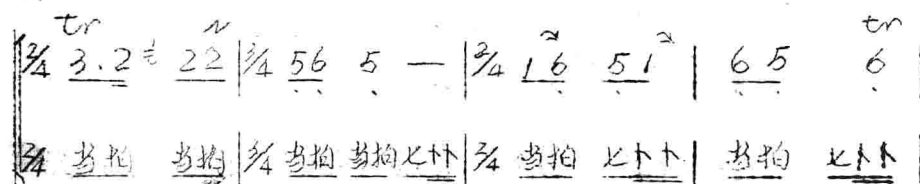 tr tr
2/4 3.2 22 | 3/4 56 5 — | 2/4 16 51 | 65 6
2/4 当拍 当拍 | 3/4 当拍 当拍 七卜卜 | 2/4 当拍 七卜卜 | 当拍 七卜卜